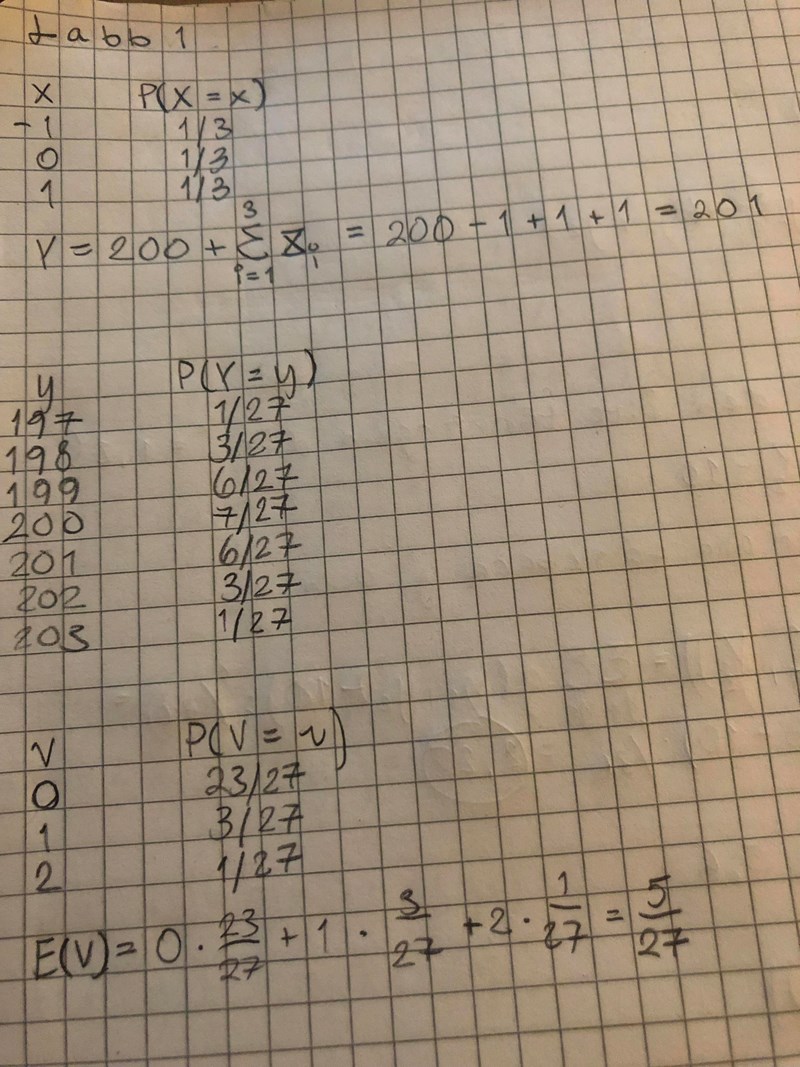 Labb 1
x P(X = x)
-1 1/3
0 1/3
1 1/3
Y = 200 + 3∑i=1 Xi = 200 - 1 + 1 + 1 = 201
y P(Y = y)
197 1/27
198 3/27
199 6/27
200 7/27
201 6/27
202 3/27
203 1/27
v P(V = v)
0 23/27
1 3/27
2 1/27
E(V) = 0 · 23/27 + 1 · 3/27 + 2 · 1/27 = 5/27